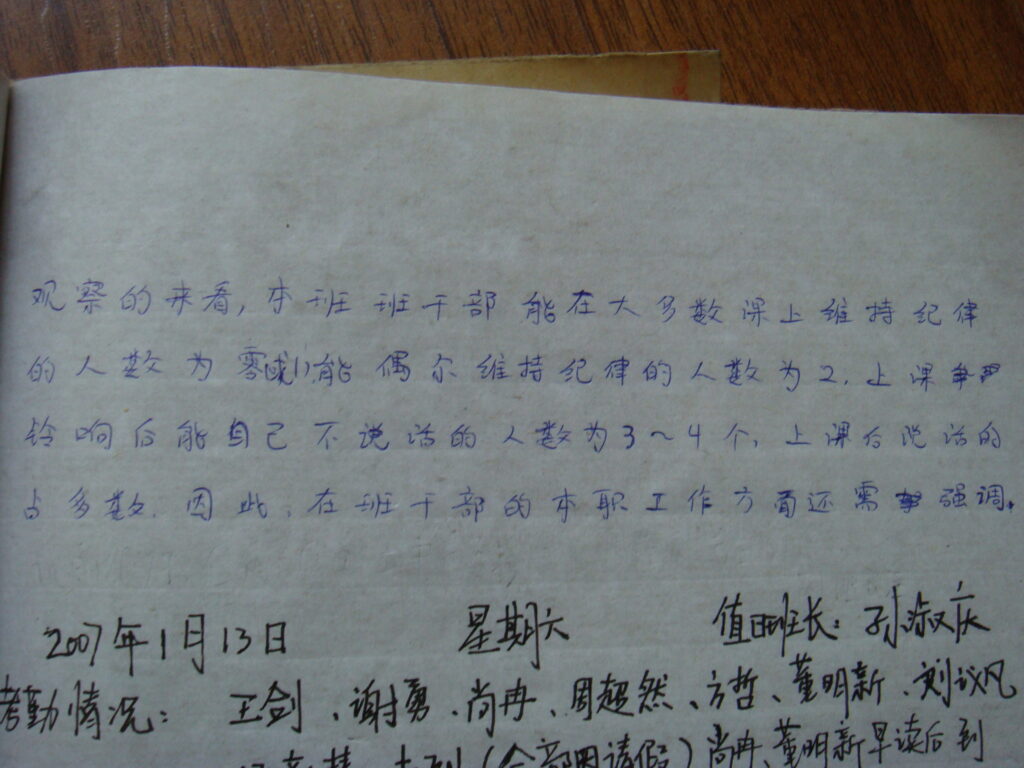 观察的来看,本班班干部能在大多数课上维持纪律
的人数为零或1,能偶尔维持纪律的人数为2.上课
铃响后能自己不说话的人数为3~4个,上课后说话的
占多数.因此,在班干部的本职工作方面还需强调.
2007年1月13日 星期六 值日班长:孙淑庆
考勤情况: 王剑、谢勇、尚冉、周超然、方哲、董明新、刘议风
(全部因请假)尚冉、董明新早读后到